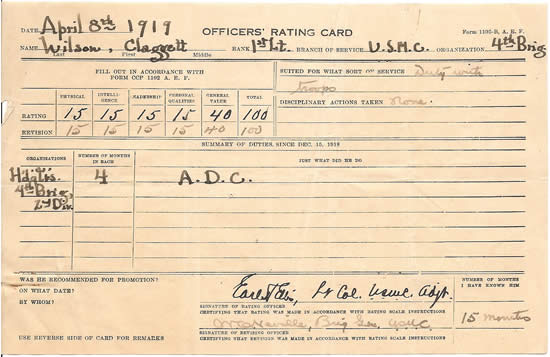 DATE April 8th 1919 OFFICERS' RATING CARD Form 1192-B, A. E. F.
NAME Wilson, Claggett RANK 1st Lt. BRANCH OF SERVICE U.S.M.C. ORGANIZATION 4th Brig.
Last First Middle
FILL OUT IN ACCORDANCE WITH
FORM OCP 1192 A. E. F.
SUITED FOR WHAT SORT OF SERVICE Duty with
troops
DISCIPLINARY ACTIONS TAKEN None.
PHYSICAL INTELLIGENCE LEADERSHIP PERSONAL QUALITIES GENERAL VALUE TOTAL
RATING 15 15 15 15 40 100
REVISION 15 15 15 15 40 100
SUMMARY OF DUTIES, SINCE DEC. 15, 1918
ORGANIZATIONS NUMBER OF MONTHS IN EACH JUST WHAT DID HE DO
Hdqtrs. 4 A.D.C.
4th Brig,
2nd Div.
WAS HE RECOMMENDED FOR PROMOTION?
ON WHAT DATE?
BY WHOM?
Earl H Ellis, Lt Col. USMC. Adjt.
SIGNATURE OF RATING OFFICER
CERTIFYING THAT RATING WAS MADE IN ACCORDANCE WITH RATING SCALE INSTRUCTIONS
Neville, Brig Gen. USMC
SIGNATURE OF REVISING OFFICER
CERTIFYING THAT RATING WAS MADE IN ACCORDANCE WITH RATING SCALE INSTRUCTIONS
NUMBER OF MONTHS
I HAVE KNOWN HIM
15 months
USE REVERSE SIDE OF CARD FOR REMARKS